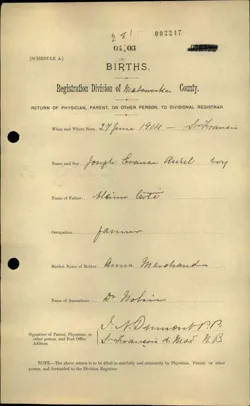 281
002247
01,03
[SCHEDULE A.]
BIRTHS.
Registration Division of Madawaska County.
RETURN OF PHYSICIAN, PARENT, OR OTHER PERSON, TO DIVISIONAL REGISTRAR.
When and Where Born, 27 June 1904 — St Francis
Name and Sex Joseph Evance Aurel boy
Name of Father, Côté
Occupation, farmer
Maiden Name of Mother Anna Marchand
Name of Accoucheur, Dr
Signature of Parent, Physician, or other person, and Post Office Address
St François de Mad. N.B
NOTE.—The above return is to be filled in carefully and separately by Physician, Parent, or other person, and forwarded to the Division Registrar.